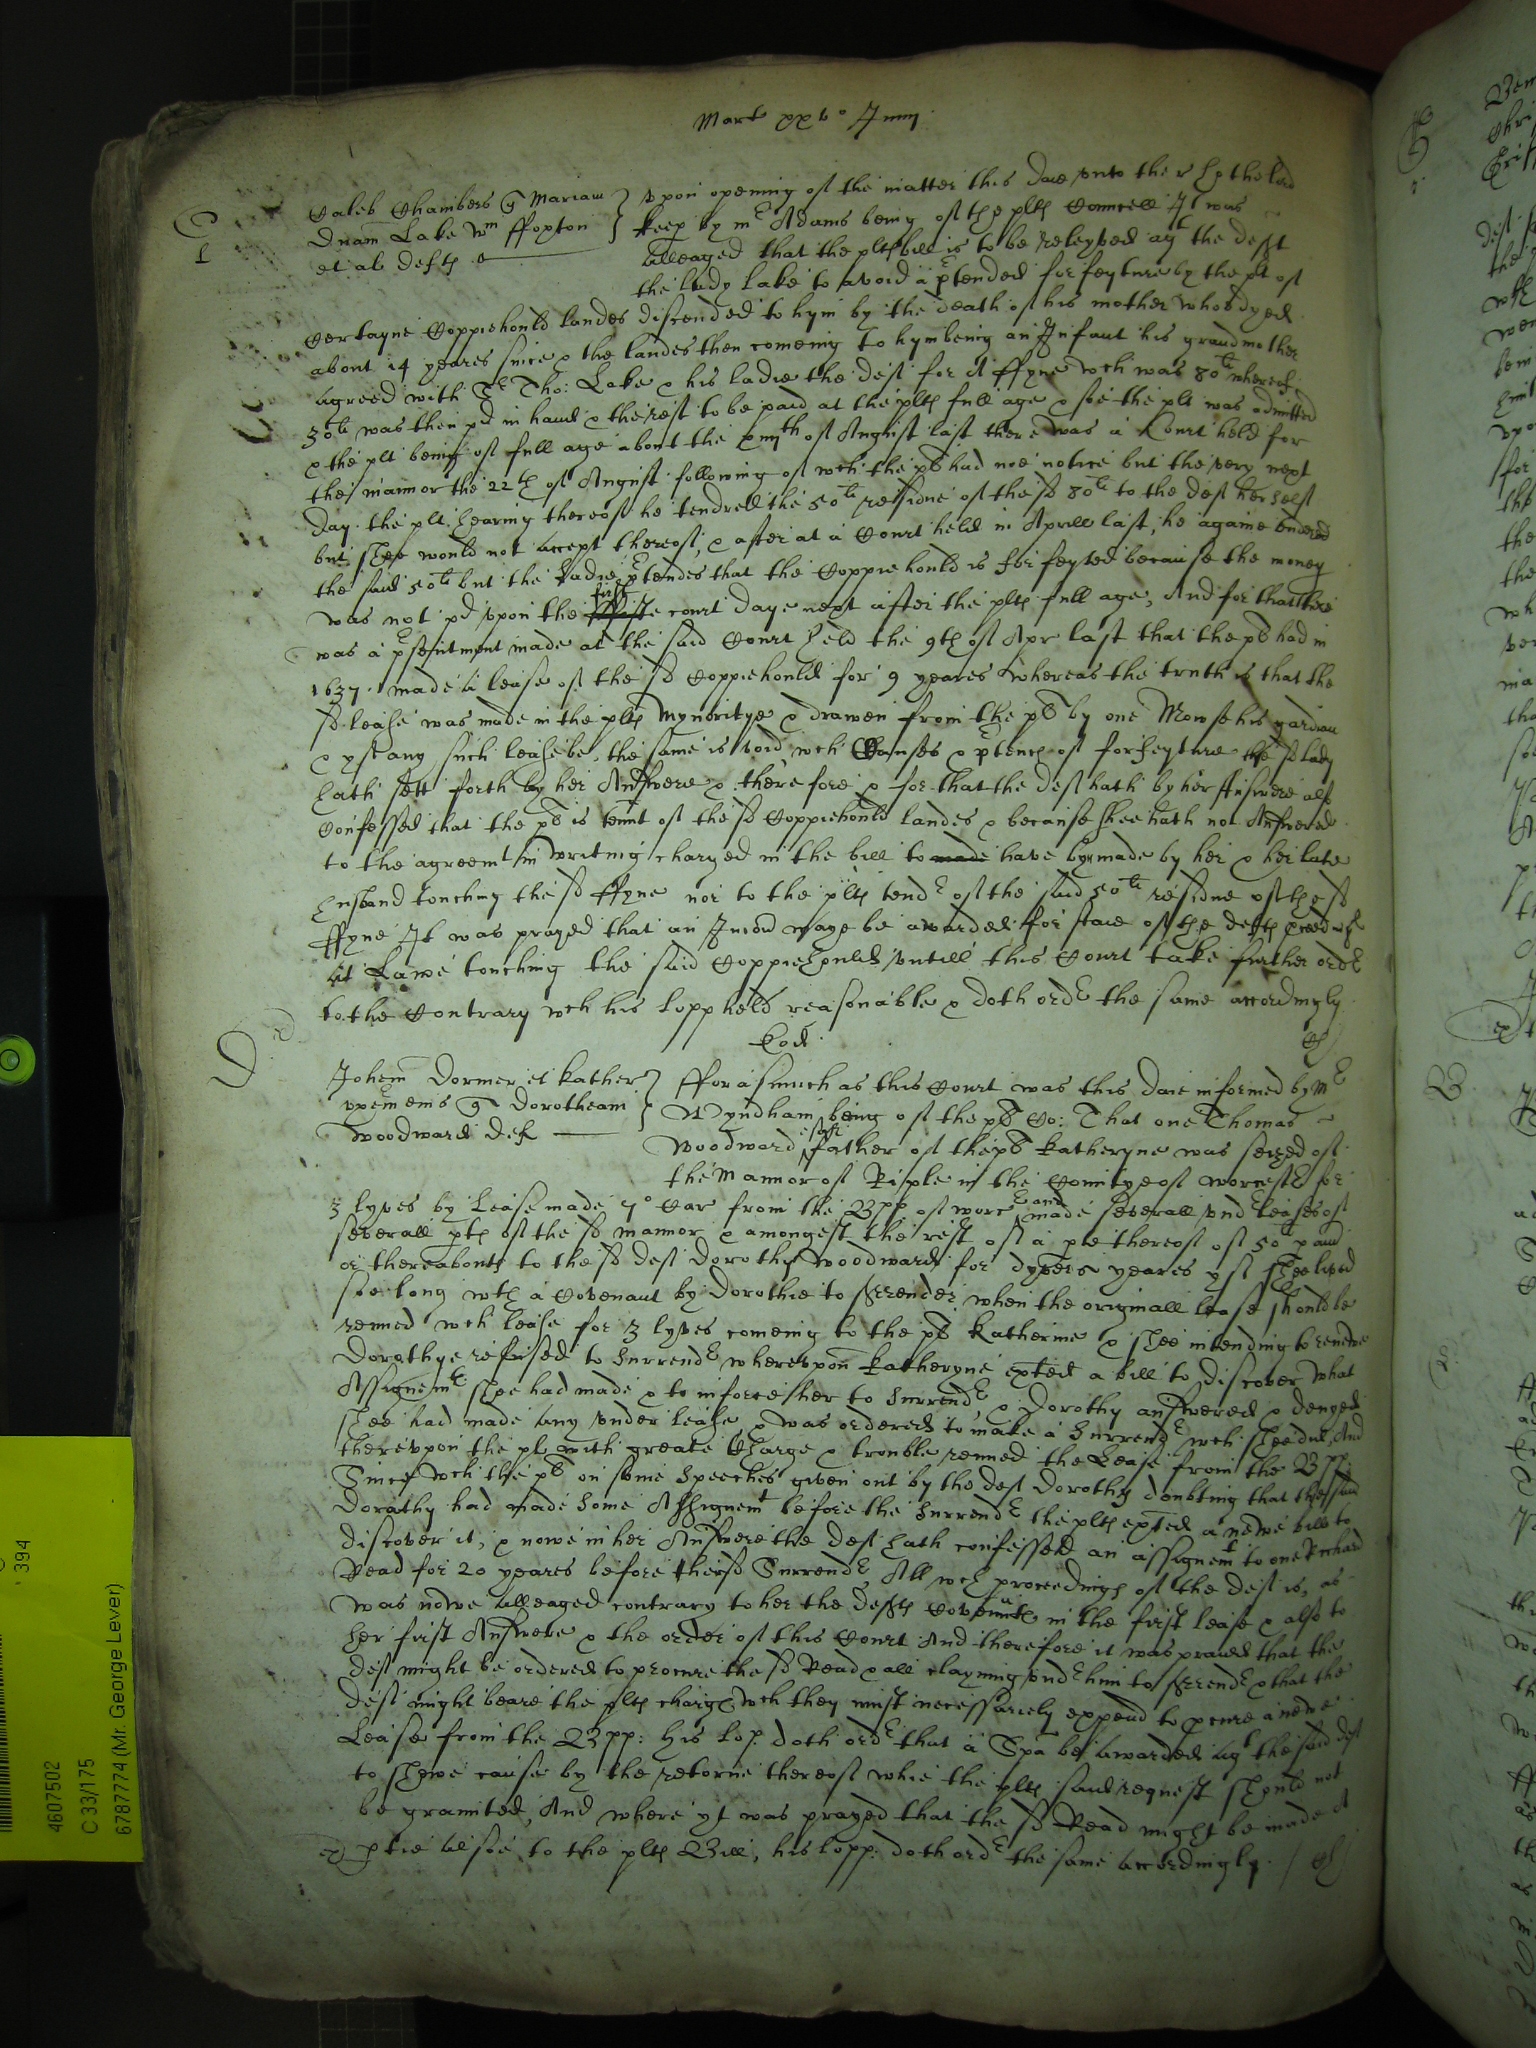 Marte xxvo Junij
C
1
Caleb Chambers q Mariam
Dnam Lake Wm ffoxton
et al defts
Upon openinge of the matter this daie unto the r Ho: the Lord
keep by mr Adams being of the plts Councell It was
alleaged that the plts bill is to be releived agt the deft
the Lady Lake to avoid a ptended forfeyture by the plt of
certayne Coppiehould landes discended to hym by the death of his mother who dyed
about 14 yeares since & the landes then comeing to hym being an Infant his grandmother
agreed with Sr Tho: Lake & his ladie the deft for A ffyne wch was 80li whereof
30li was then pd in hand & the rest to be paid at the plts full age & soe the plt was admitted
& the plt being of full age about the of August last there was a Court held for
the mannor the 22th of August following of wch the pl had noe notice but the very next
day the plt hearing thereof he tendred the 50li residue of the sd 80li to the deft herself
but shee would not accept thereof, & after at a Court held in Aprill last, he againe tendered
the said 50li but the Ladie ptendes that the Coppiehould is forfeyted because the money
was not pd upon the first court daye next after the plts full age, And for that there
was a psentment made at the said Court held the 9th of Apr last that the pl had in
1637 made a lease of the sd Coppiehould for 9 yeares Whereas the truth is that the
sd lease was made in the plts Mynoritye & drawen from the pl by one Mowse his gardian
& yf any such lease be, the same is void, wch Causes & ptences of forfeyture the sd lady
hath sett forth by her Answere & therefore & for that the deft hath by her Answere also
Confessed that the pl is tennt of the sd Coppiehould landes & because shee hath not Answered
to the agreemt in writing charged in the bill to made have byn made by her & her late
husband touching the sd ffyne nor to the plts tendr of the said 50li residue of the sd
ffyne It was prayed that an Iniuncon maye be awarded for staie of the defts pceedings
at Lawe touching the said Coppiehould untill this Court take further ordr
to the Contrary wch his Lopp held reasonable & doth ordr the same accordingly
Eod
D
Johem Dormer et Kather
uxem eius q Dorotheam
Woodward def
fforasmuch as this Court was this daie informed by Mr
Wyndham being of the pl Co: That one Thomas
Woodward esqr father of the pl Katheryne was seized of
the Mannor of Riple in the Countye of Worcestr for
3 lyves by Lease made 7o Car from the Bpp of worcr and made severall undr leases of
severall pts of the sd mannor & amongest the rest of a pte thereof of 50li p ann
or thereabouts to the sd deft Dorothy Woodward for dyvers yeares yf shee lived
soe long wth a Covenant by Dorothie to surrender when the originall lease should be
renued wch lease for 3 lyves comeing to the pl Katherine & shee intending to renewe
Dorothye refused to surrendr whereupon Katheryne exted a bill to discover what
Assignemts shee had made & to inforce her to surrendr & Dorothy answered & denyed
shee had made any under lease & was ordered to make a surrendr wch shee did, And
thereupon the plt with greate Charge & trouble renued the Lease from the Bpp:
Since wch the pl on some speeches given out by the deft Dorothy doubting that the said
Dorathy had made some Assignemt before the surrendr the plts exted a newe bill to
discover it, & nowe in her Answere the deft hath confessed an assignemt to one Richard
Read for 20 yeares before the sd Surrendr All wch proceedings of the deft is, as
was nowe alleaged contrary to her the defts Covennts in the first lease & also to
her first Answere & the order of this Court And therefore it was praied that the
deft might be ordered to procure the sd Read & all clayming undr him to surrendr & that the
deft might beare the plts charge wch they must necessarily expend to pcure a newe
Lease from the Bpp: his Lop: doth ordr that a Spa be awarded agt the said deft
to shewe cause by the retorne thereof whie the plts said request should not
be graunted, And where yt was prayed that the sd Read might be made A
ptie alsoe to the plts Bill, his Lopp: doth ordr the same accordingly
394
4607502
C 33/175
6787774 (Mr. George Lever)